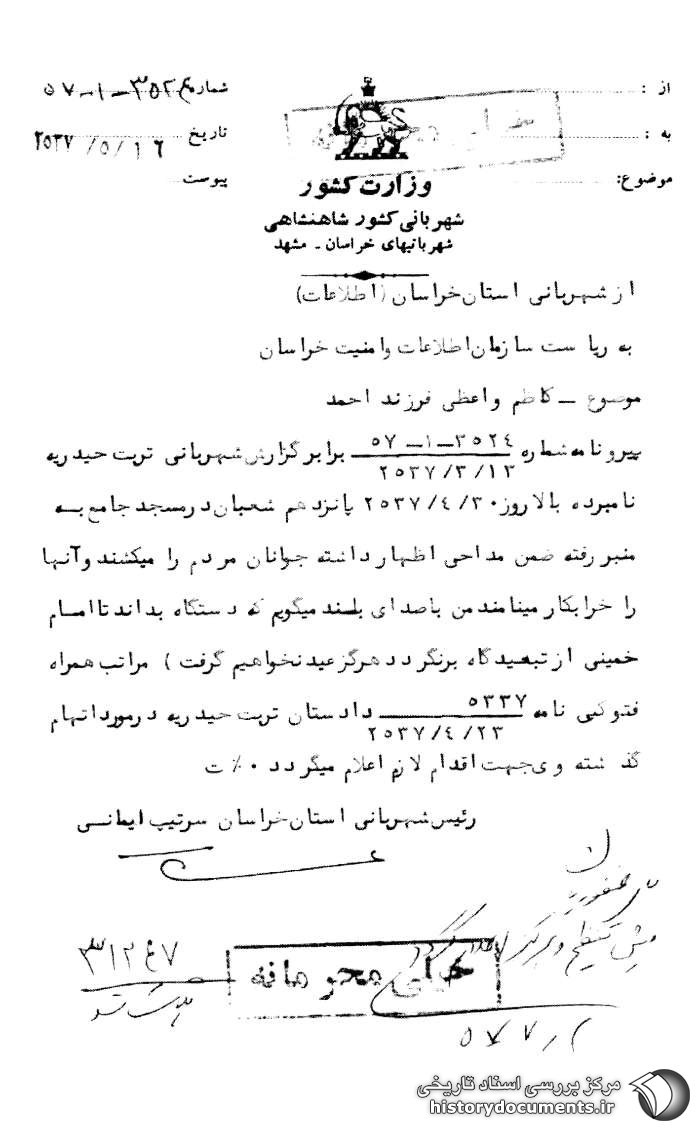 از :
به :
موضوع:
وزارت کشور
شهربانی کشور شاهنشاهی
شهربانیهای خراسان - مشهد
شماره ۳۵۲۴-۱-۵۷
تاریخ ۲۵۳۷/۵/۱۶
پیوست
از شهربانی استان خراسان (اطلاعات)
به ریاست سازمان اطلاعات وامنیت خراسان
موضوع - کاظم واعظی فرزند احمد
پیرو نامه شماره ۳۵۲۴-۱-۵۷ برابر گزارش شهربانی تربت حیدریه
۲۵۳۷/۳/۱۳
نامبرده بالا روز ۲۵۳۷/۴/۳۰ پانزدهم شعبان درمسجد جامع به
منبر رفته ضمن مداحی اظهار داشته جوانان مردم را میکشند وآنها
را خرابکار مینامند من باصدای بلند میگویم که دستگاه بداند تا امام
خمینی از تبعیدگاه برنگردد هرگز عید نخواهیم گرفت ) مراتب همراه
فتوکپی نامه ۵۳۳۷ دادستان تربت حیدریه درمورد اتهام
۲۵۳۷/۴/۲۳
گذشته وی جهت اقدام لازم اعلام میگردد ۰٪ ت
رئیس شهربانی استان خراسان سرتیپ ایمانی
۳۱۲۴۷
خیلی محرمانه
مرکز بررسی اسناد تاریخی
historydocuments.ir